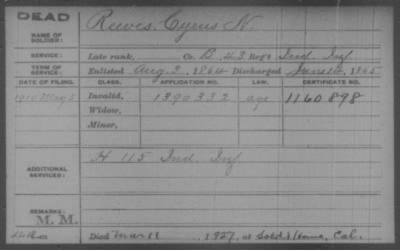 DEAD
NAME OF SOLDIER: Reeves, Cyrus N.
SERVICE: Late rank, Co. B, 43 Reg't Ind. Inf
TERM OF SERVICE: Enlisted Aug 2, 1864 Discharged June 14, 1865
DATE OF FILING. CLASS. APPLICATION NO. LAW. CERTIFICATE NO.
1910 Invalid, 1390332 age 1160898
Widow,
Minor,
ADDITIONAL SERVICES: H 115 Ind. Inf
REMARKS:
M. M.
Died Mar 11, 1927, at Sold's Home, Cal.